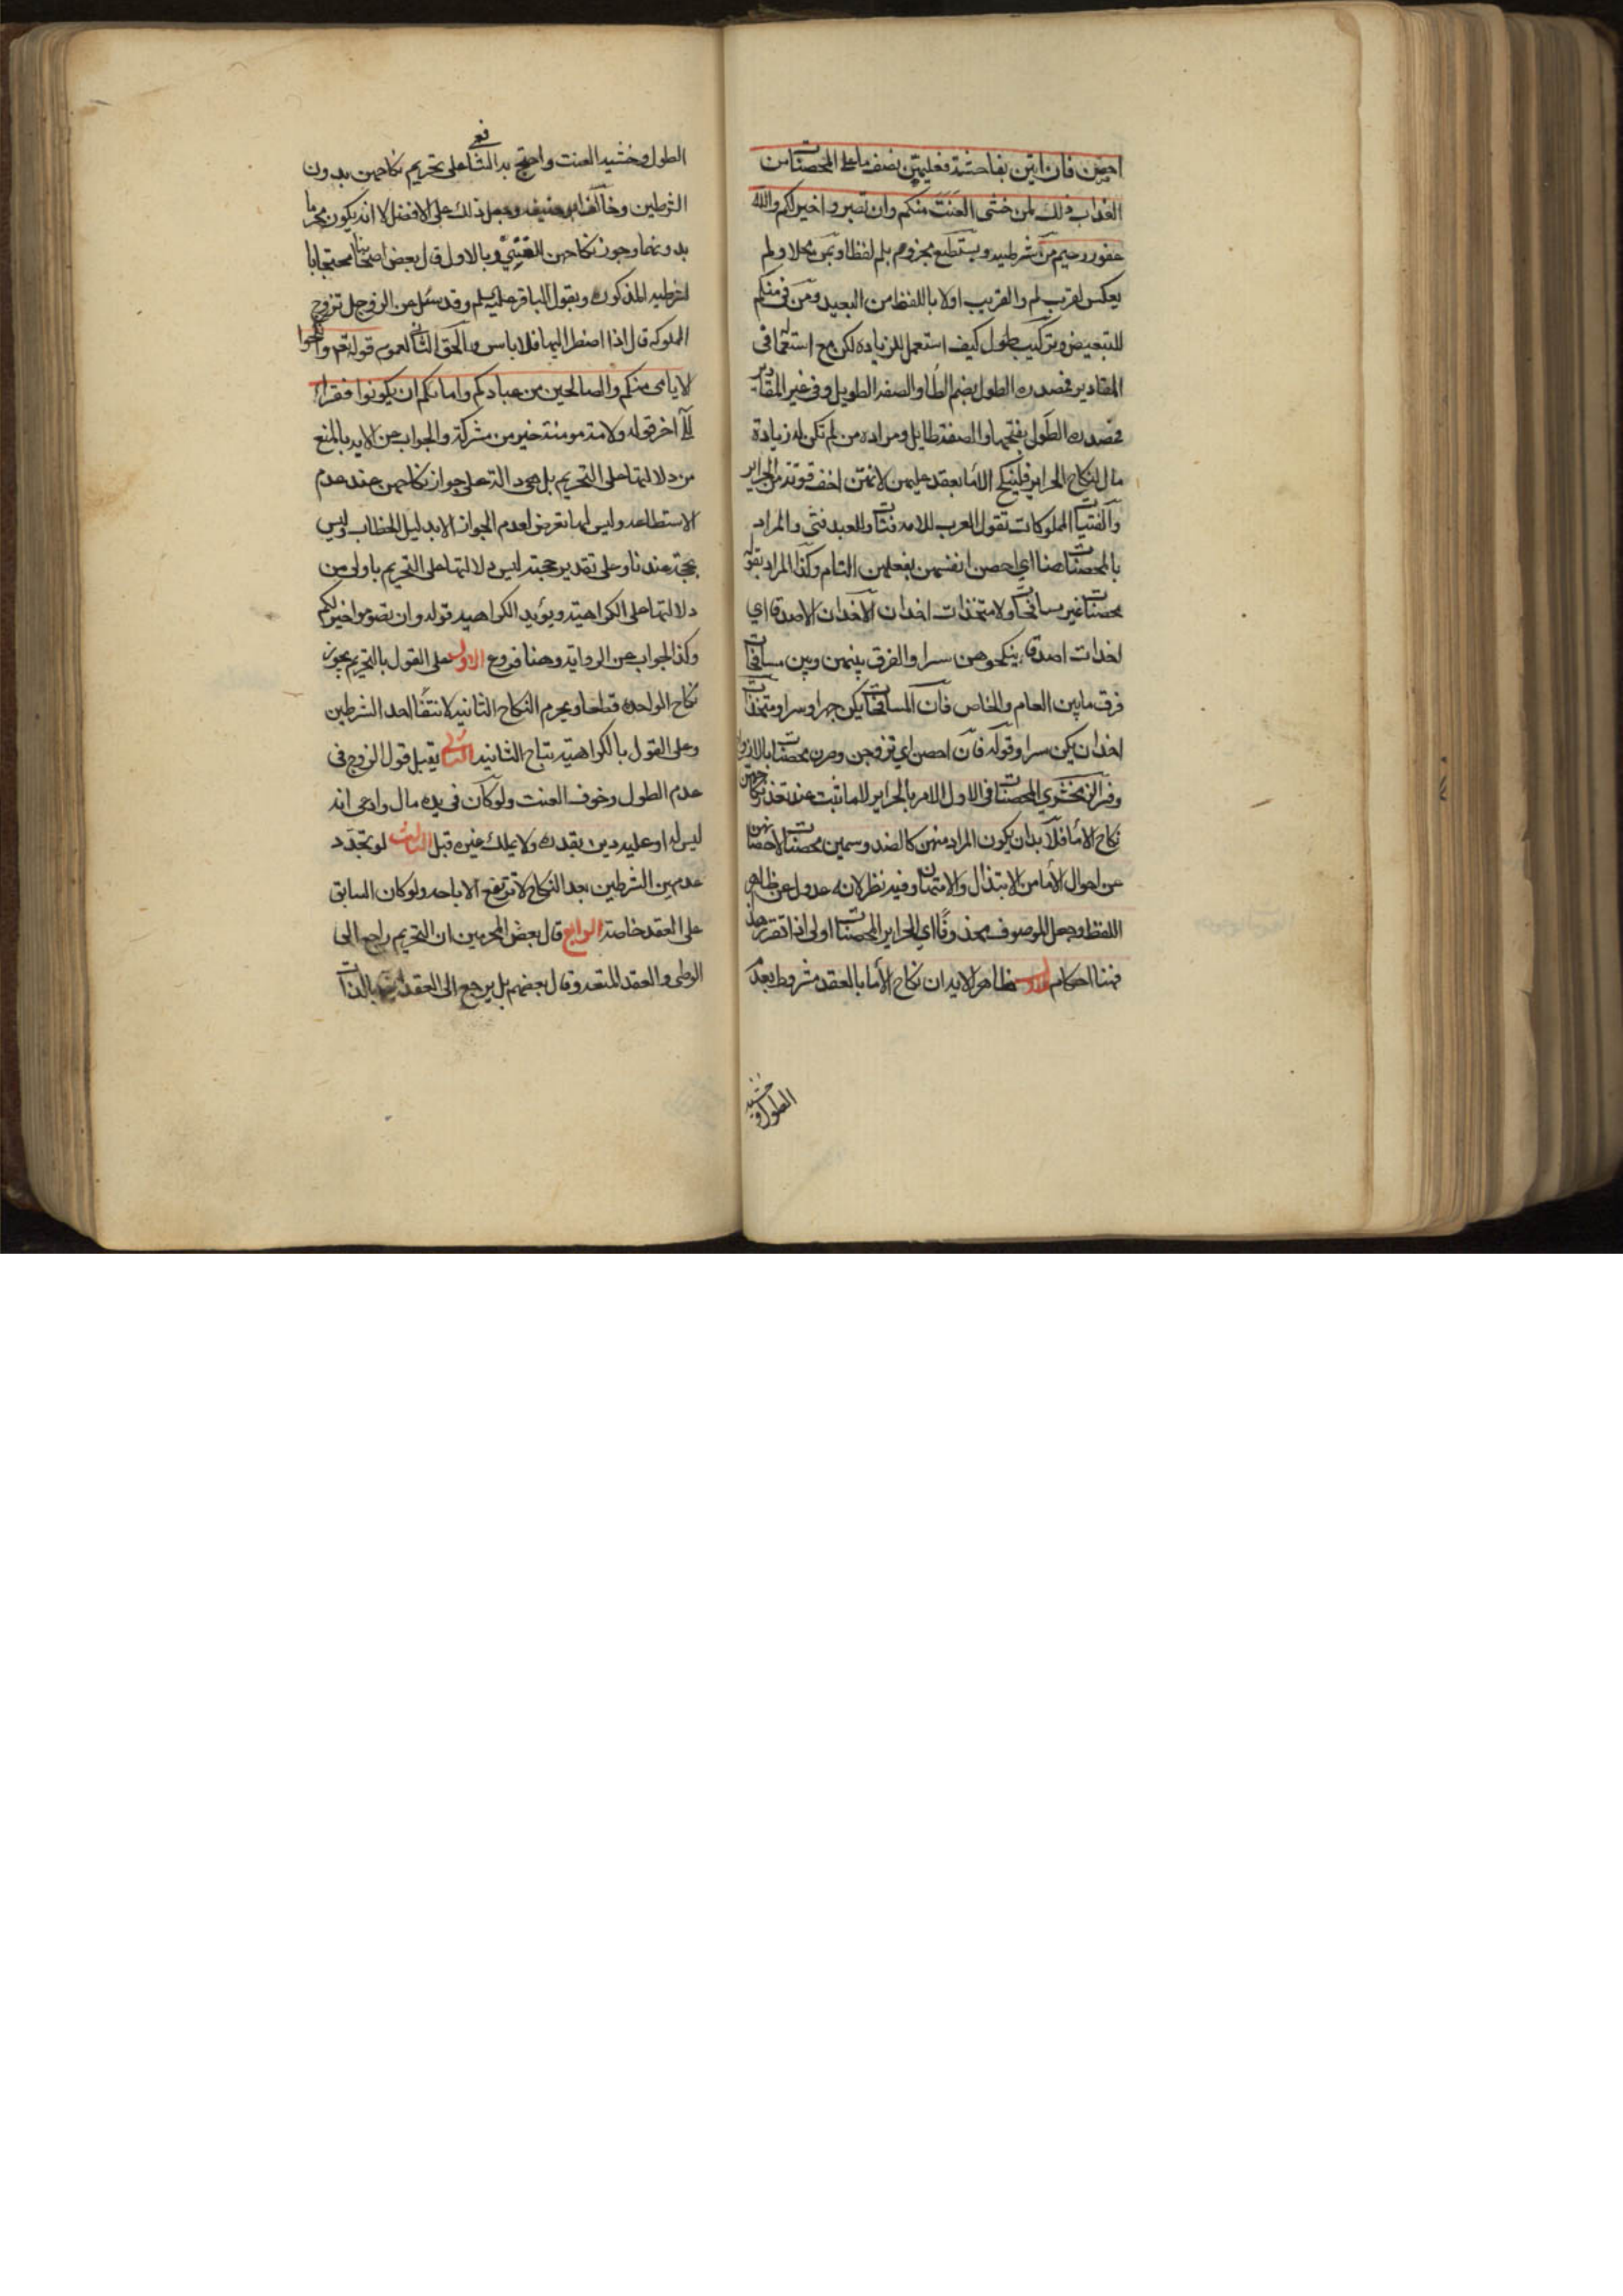 احصن فان اتين بفاحشة فعليهن نصف ما على المحصنات من
العذاب ذلك لمن خشى العنت منكم وان تصبروا خير لكم والله
غفور رحيم من شرطيه ويستطع مجزوم بلم لفظا وبمن محلا ولم
يعكس لقرب لم والقريب اولا باللفظ من البعيد ومن في منكم
للتبعيض وتركيب طول كيف استعمل للزياده لكن مع استعمالها في
المقادير فمصدره الطول بضم الطا والصفه الطويل وفي غير المقادير
فمصدره الطول بفتحها والصفة طايل ومراده من لم تكن له زيادة
مال لنكاح الحراير فلينكح الأما بعقد عليهن لانهن اخف مؤنة من الحراير
والفتيات المملوكات تقول العرب للامه فتات وللعبد فتى والمراد
بالمحصنات هنا اي احصن انفسهن بفعلهن التام وكذا المراد بقوله
محصنات غير مسافحات ولا متخذات اخدان الاخدان الاصدقا اي
اخذات اصدقا ينكحوهن سرا والفرق بينهن وبين مسافحات
فرق ما بين العام والخاص فان المسافحات يكن جهرا وسرا ومتخذات
اخدان يكن سرا وقوله فان احصن اي تزوجن وصرن محصنات بالازواج
وفسر الزمخشري المحصنات في الاول اللامر بالحراير لما ثبت عند تعذر نكاحهن
نكاح الأما فلا بد ان يكون المراد منهن كالضد وسمين محصنات لاحصانهن
عن احوال الأما من الابتذال والامتهان وفيه نظر لانه عدول عن ظاهر
اللفظ وجعل الموصوف محذوفا اي الحراير المحصنات اولى اذا تقرر هذا
فهنا احكام ظاهر الايه ان نكاح الأما بالعقد مشروط بعدم
الطول وخشيه
الطول وخشيه العنت واحتج به الشافعي على تحريم نكاحهن بدون
الشرطين وخالف ابو حنيفه وجعل ذلك على الافضل لا انه يكون محرما
بدونهما وجوز نكاحهن للغني وبالاول قال بعض اصحابنا محتجا بالا
لشرطيه المذكوره وبقول الباقر عليه السلم وقد سئل عن الرجل تزوج
المملوكه قال اذا اضطر اليها فلا باس والحق الثاني لعموم قوله تعالى وانكحوا
الايامى منكم والصالحين من عبادكم وامائكم ان يكونوا فقراء
الى آخر قوله ولامة مومنة خير من مشركة والجواب عن الايه بالمنع
من دلالتها على التحريم بل هي دالة على جواز نكاحهن عند عدم
الاستطاعه وليس لها تعرض لعدم الجواز الا بدليل الخطاب وليس
بحجة عندنا وعلى تقدير حجته ليس دلالتها على التحريم باولى من
دلالتها على الكراهية ويؤيد الكراهيه قوله وان تصوموا خير لكم
وكذا الجواب عن الروايه وهنا فروع الاول على القول بالتحريم يجوز
نكاح الواحده قطعا ويحرم النكاح الثانيه لانتفا احد الشرطين
وعلى القول بالكراهية يتباح الثانيه الثاني يقبل قول الزوج في
عدم الطول وخوف العنت ولو كان في يده مال وادعى انه
ليس له او عليه دين بقدره ولا يملك غيره قبل الثالث لو تجدد
عدم هين الشرطين بعد النكاح لا ترتفع الاباحه ولو كان السابق
على العقد خاصة الرابع قال بعض المحرمين ان التحريم راجع الى
الوطى والعقد المتعه وقال بعضهم بل يرجع الى العقد بالذات